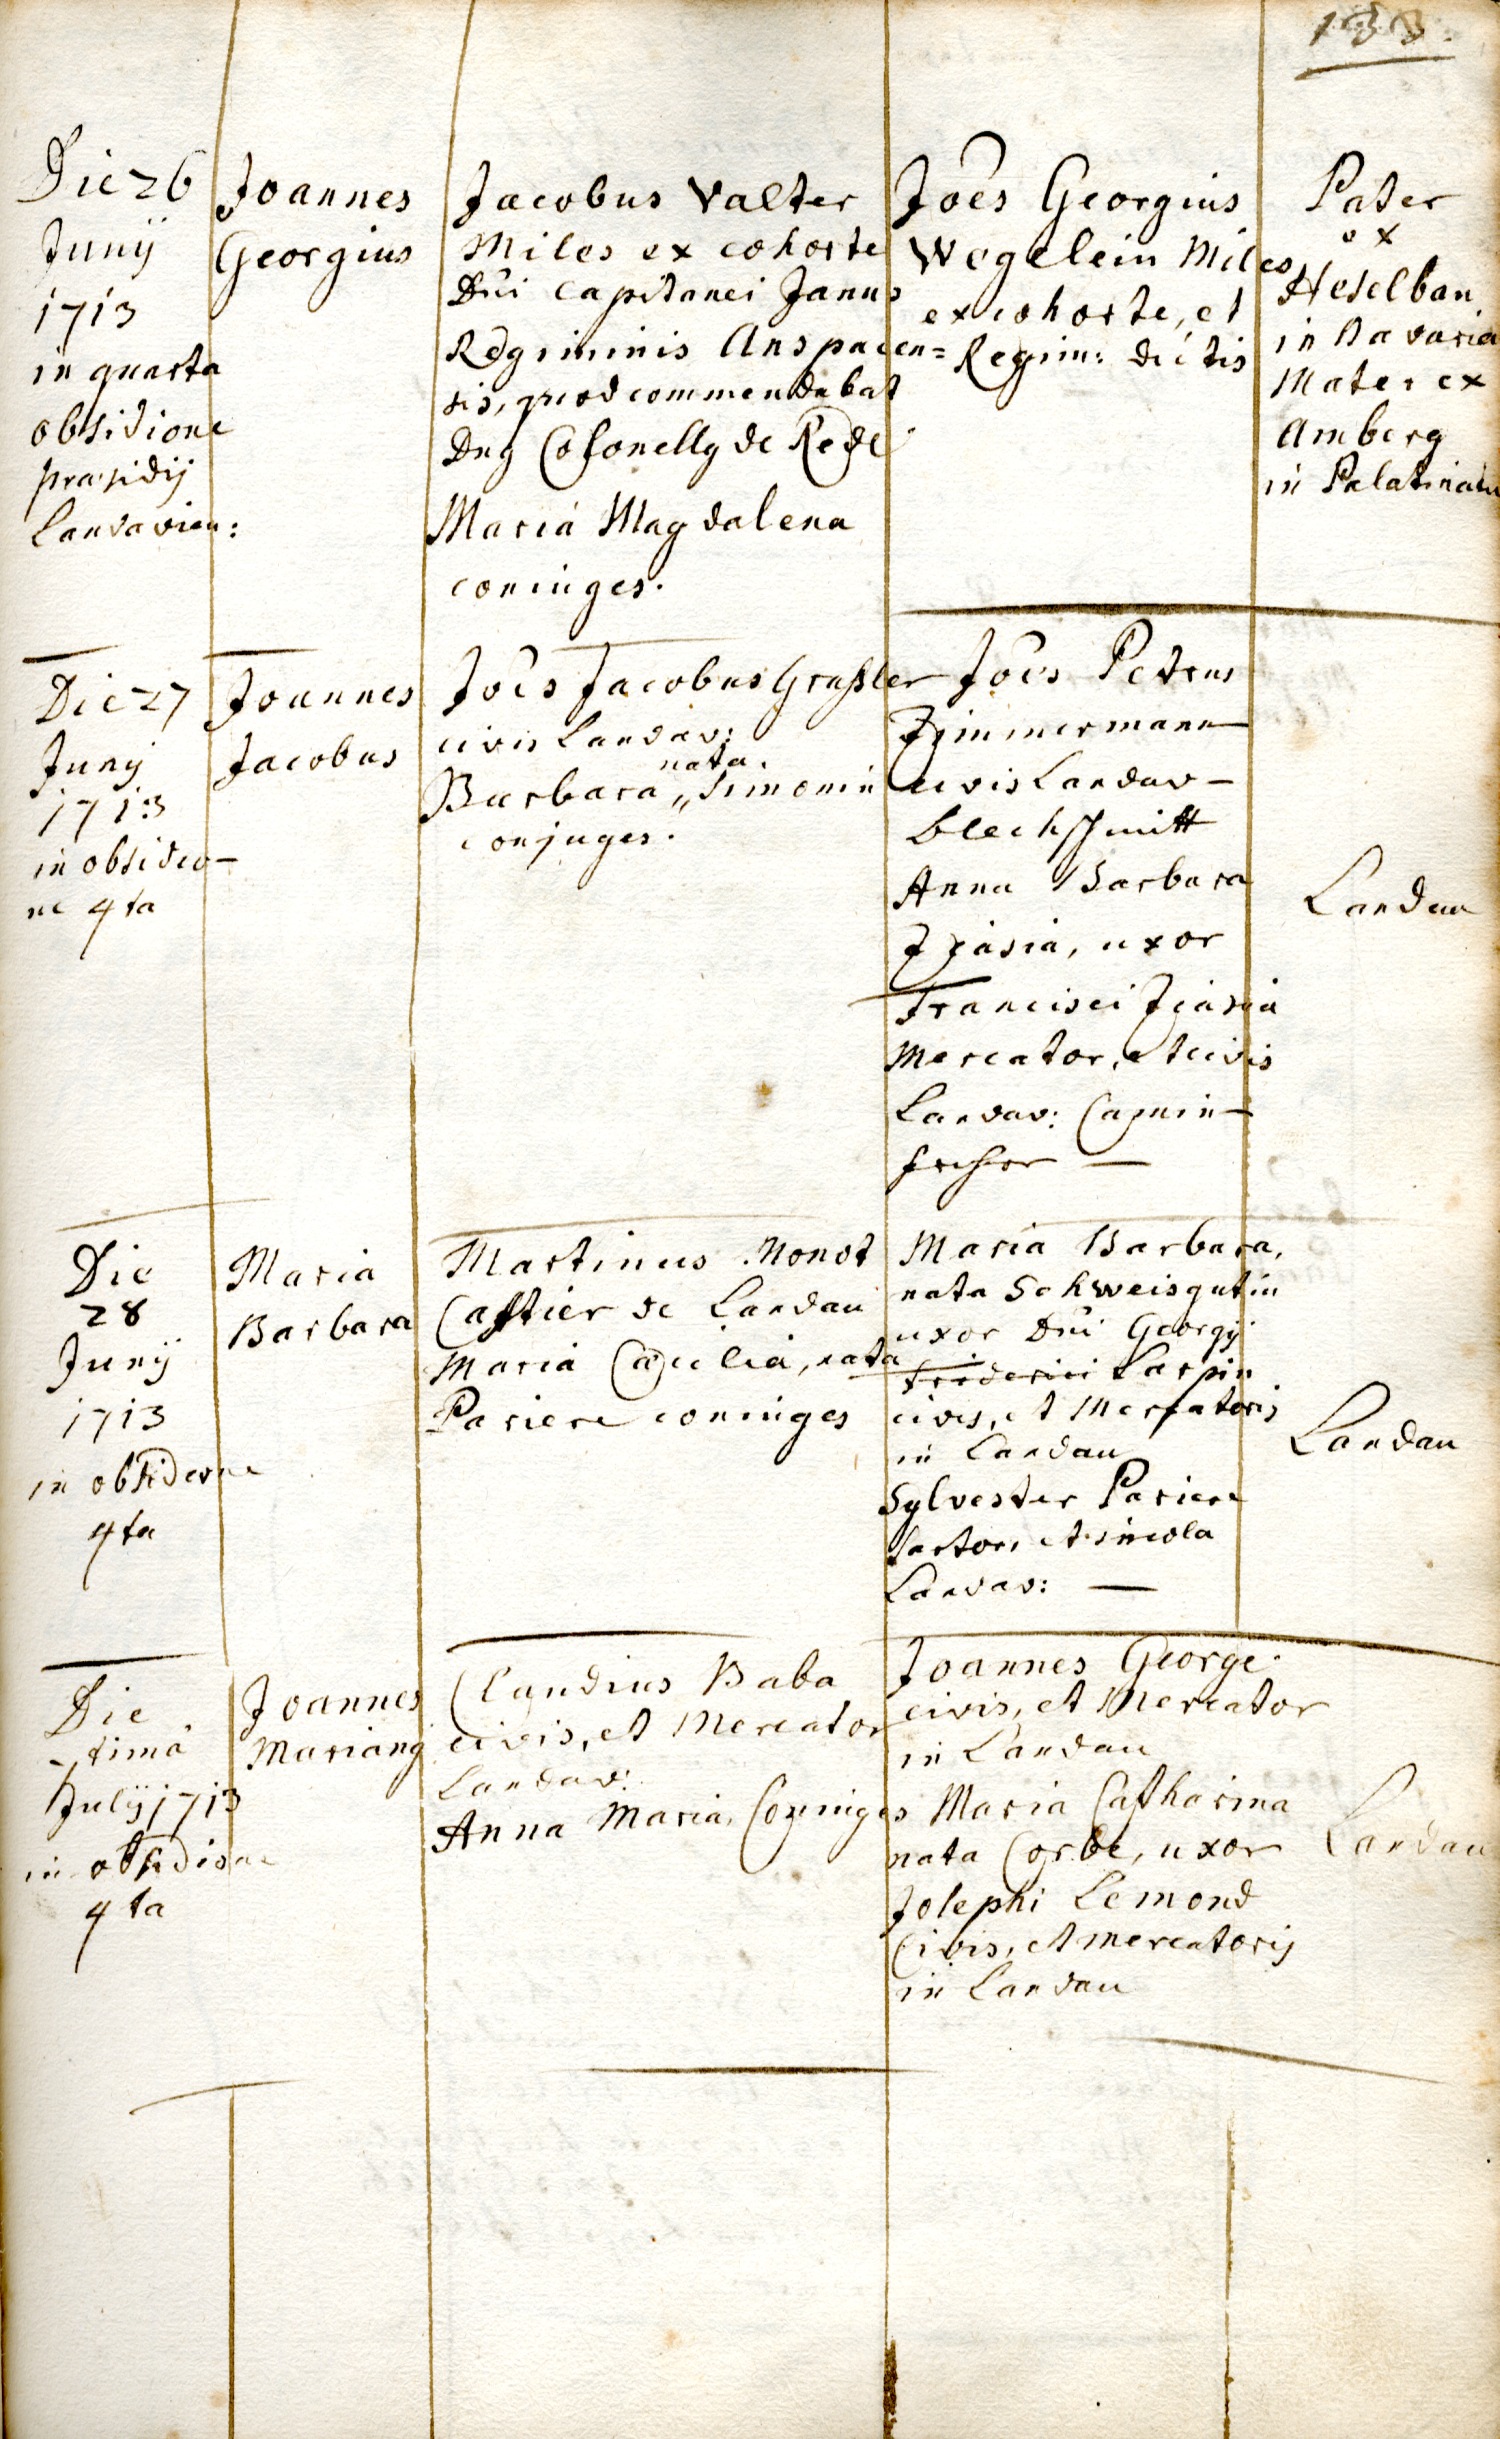 133.
Die 26
Junij
1713
in quarta
obsidione
præsidij
Landavien:
Joannes
Georgius
Jacobus Valter
Miles ex cohorte
Dñi Capitanei Janus
Regiminis Anspacen=
sis, quod commendabat
Dnq Colonellq de Rede
Maria Magdalena
coniuges.
Joês Georgius
Wegelein Miles
ex cohorte, et
Regim: dictis
Pater
ex
Heselban
in Bavaria
Mater ex
Amberg
in Palatinatu
Die 27
Junij
1713
in obsidio-
ne 4ta
Joannes
Jacobus
Joês Jacobus Graßler
civis Landav:
nata
Barbara „ Simonin
conjuges.
Joês Petrus
Zimmermann
civis Landav-
blechschmitt
Anna Barbara
uxor
Francisci
Mercator, et civis
Landav: Camin-
Landau
Die
28
Junij
1713
in obsidione
4ta
Maria
Barbara
Martinus Monot
Cafftier de Landau
Maria Cæcilia, nata
Pariere coniuges
Maria Barbara,
nata Schweisgutin
uxor Dñi Georgij
Friderici Larpin
civis, et Mercatoris
in Landau
Sylvester Pariere
sartor, et incola
Landav: —
Landau
Die
7timâ
Julij 1713
in obsidione
4ta
Joannes
Marianq
Claudius Baba
civis, et Mercator
Landav:
Anna Maria, Coniuges
Joannes George
civis, et Mercator
in Landau
Maria Catharina
nata Corbe, uxor
Josephi Lemond
Civis, et mercatoris
in Landau
Landau